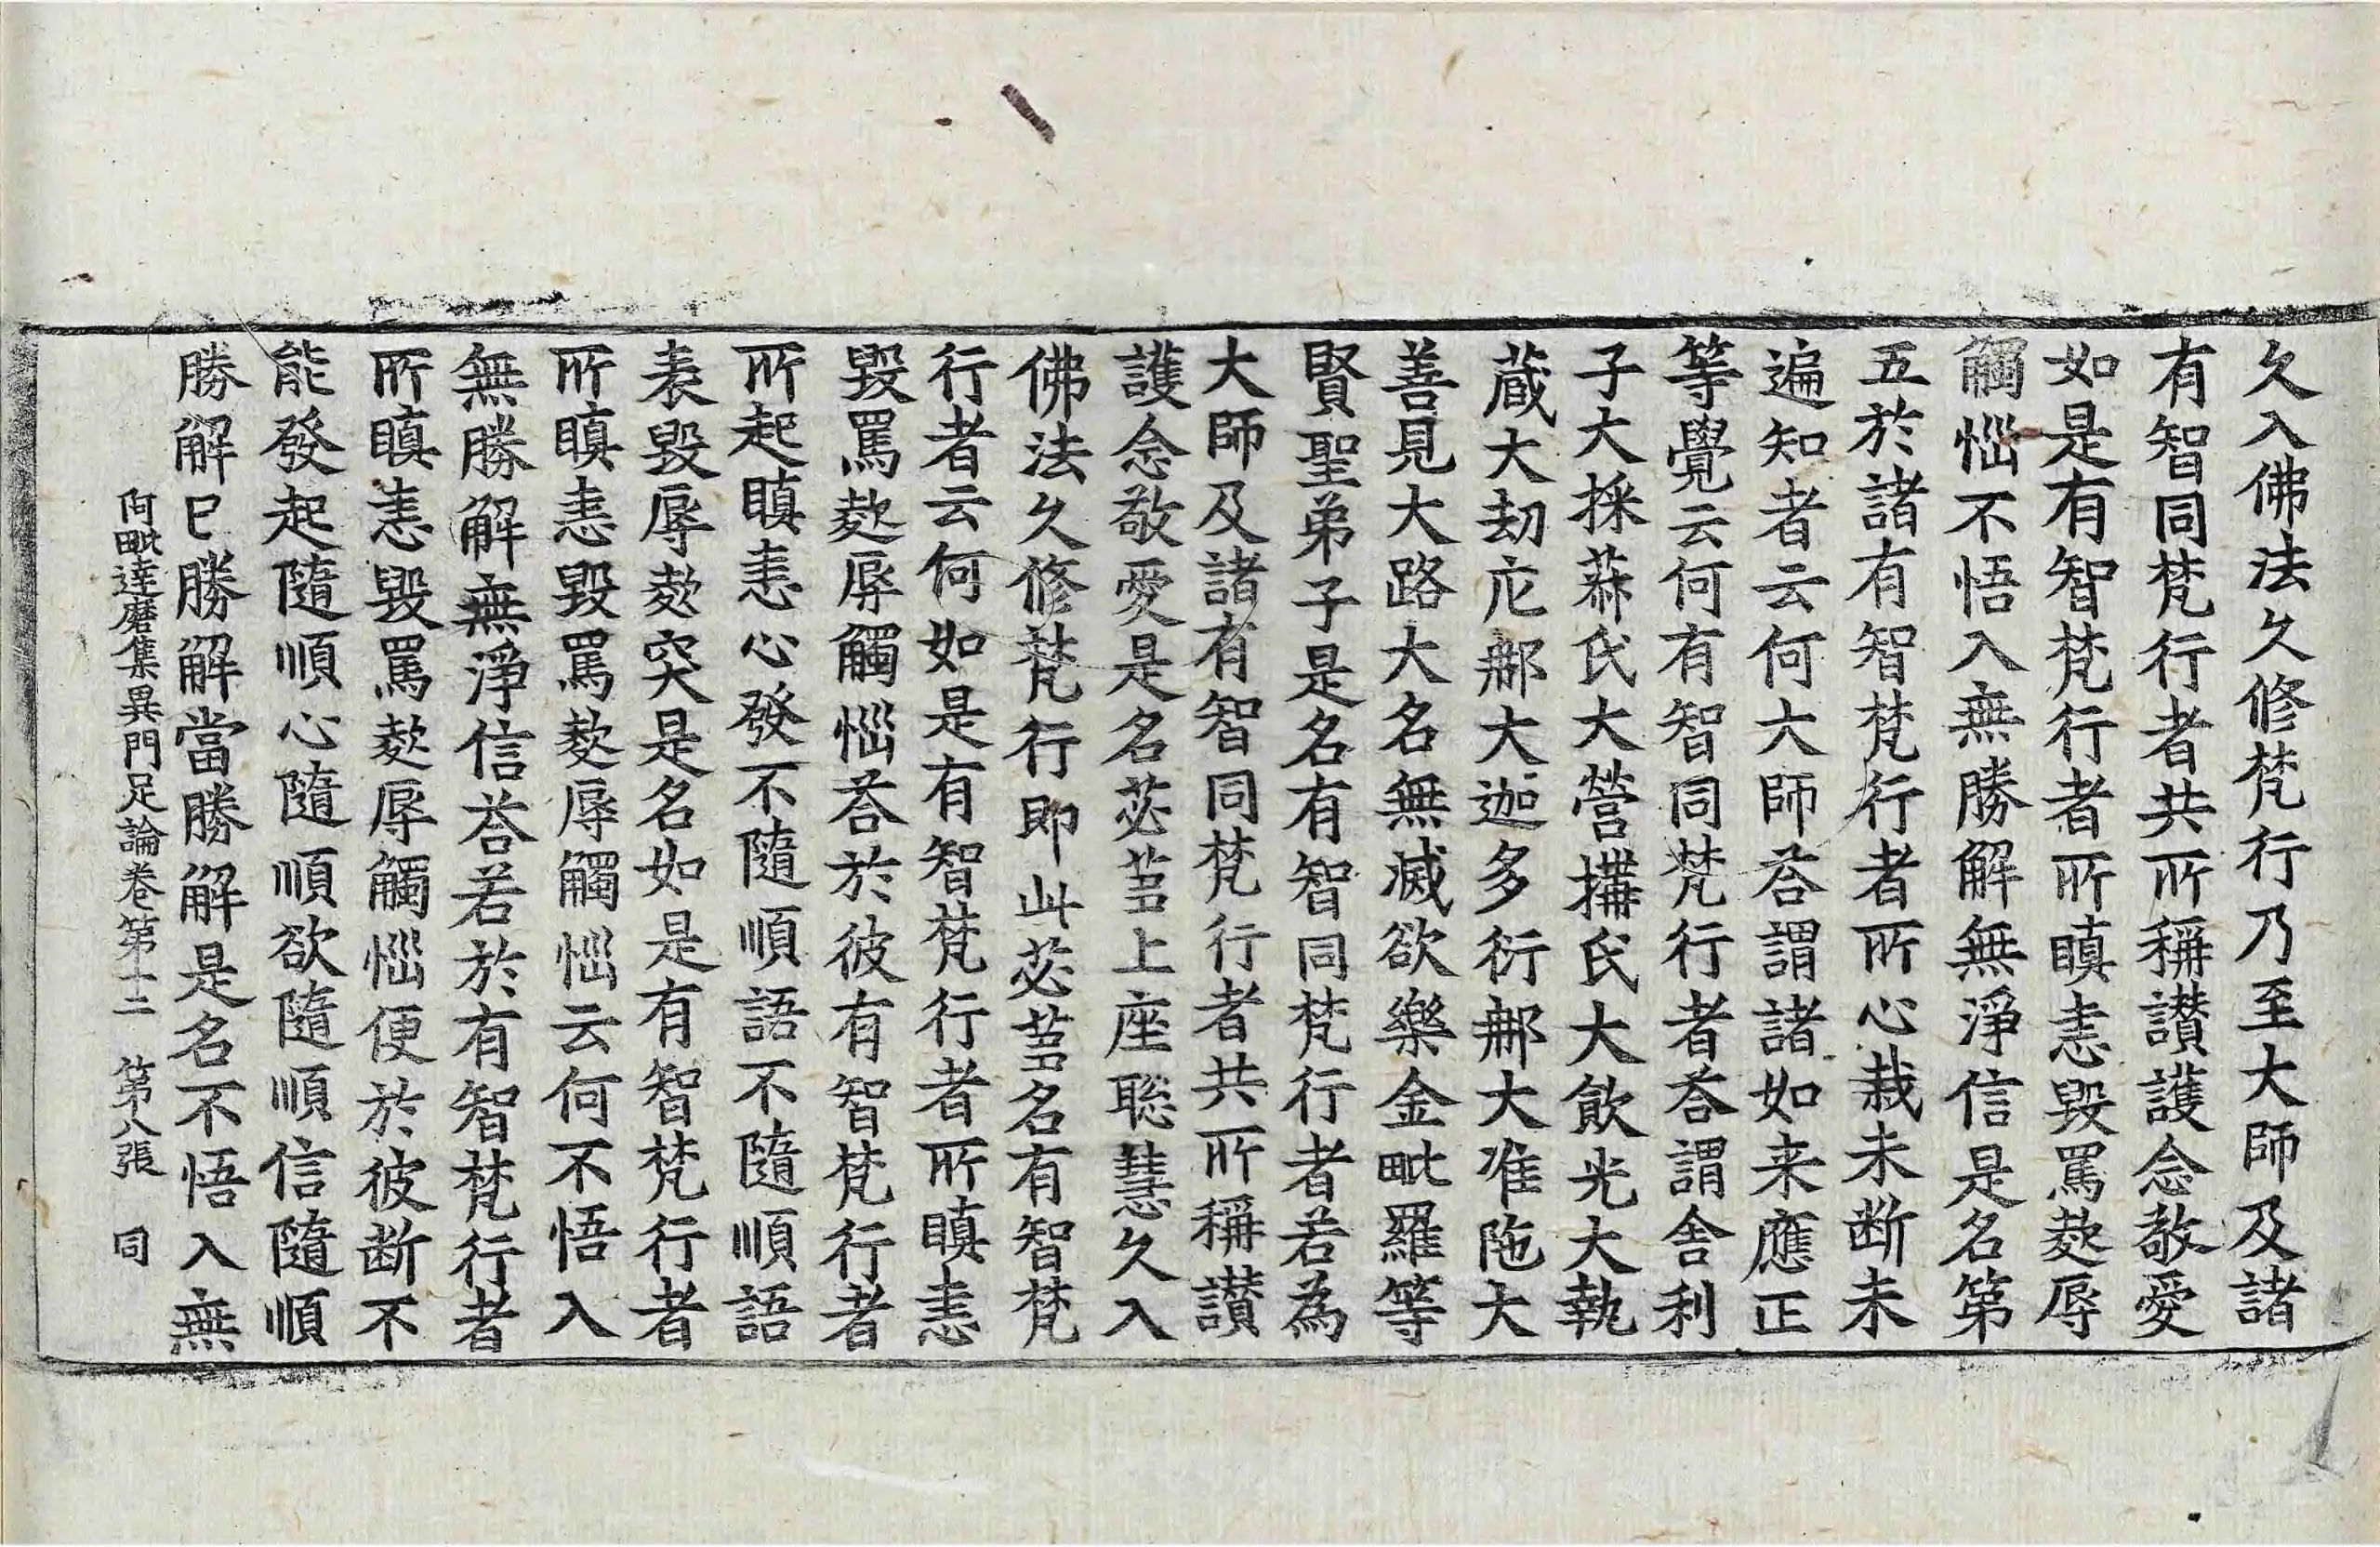 久入佛法久修梵行乃至大師及諸
有智同梵行者共所稱讃護念敬愛
如是有智梵行者所瞋恚毀罵欻辱
觸惱不悟入無勝解無淨信是名第
五於諸有智梵行者所心栽未断未
遍知者云何大師荅謂諸如来應正
等覺云何有智同梵行者荅謂舍利
子大採菽氏大營搆氏大飲光大執
藏大劫庀那大迦多衍那大准陁大
善見大路大名無滅欲樂金毗羅等
賢聖弟子是名有智同梵行者若為
大師及諸有智同梵行者共所稱讃
護念敬愛是名苾芻上座聡慧久入
佛法久修梵行即此苾芻名有智梵
行者云何如是有智梵行者所瞋恚
毀罵欻辱觸惱荅於彼有智梵行者
所起瞋恚心發不隨順語不隨順語
表毀辱欻突是名如是有智梵行者
所瞋恚毀罵欻辱觸惱云何不悟入
無勝解無淨信荅若於有智梵行者
所瞋恚毀罵欻辱觸惱便於彼断不
能發起隨順心隨順欲隨順信隨順
勝解巳勝解當勝解是名不悟入無
阿毗達磨集異門足論卷第十二 第十八張 同